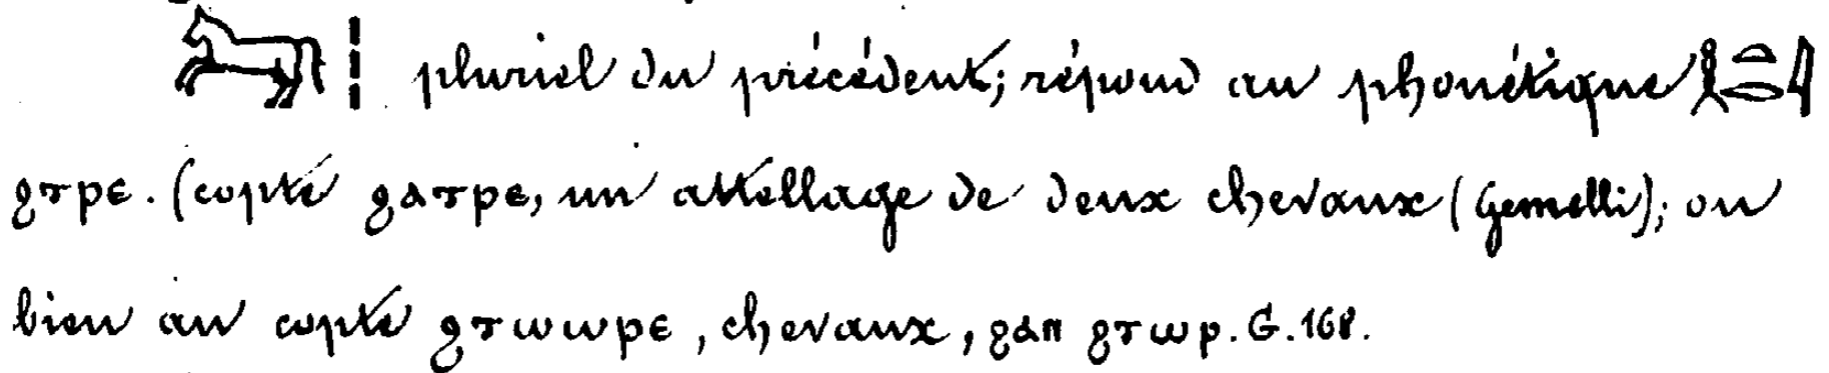 𓃗𓏥 pluriel du précédent; répond au phonétique 𓎛𓏏𓂋𓇋
ϩⲧⲣⲉ. (copte ϩⲁⲧⲣⲉ, un attellage de deux chevaux (Gemelli); ou
bien au copte ϩⲧⲱⲱⲣⲉ, chevaux, ϩⲁⲛ ϩⲧⲱⲣ. G. 168.